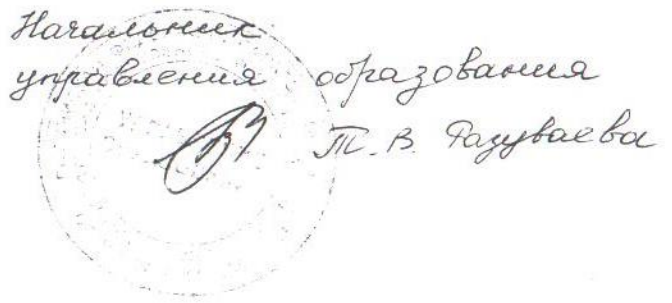 Начальник
управления образования
Т.В. Разуваева